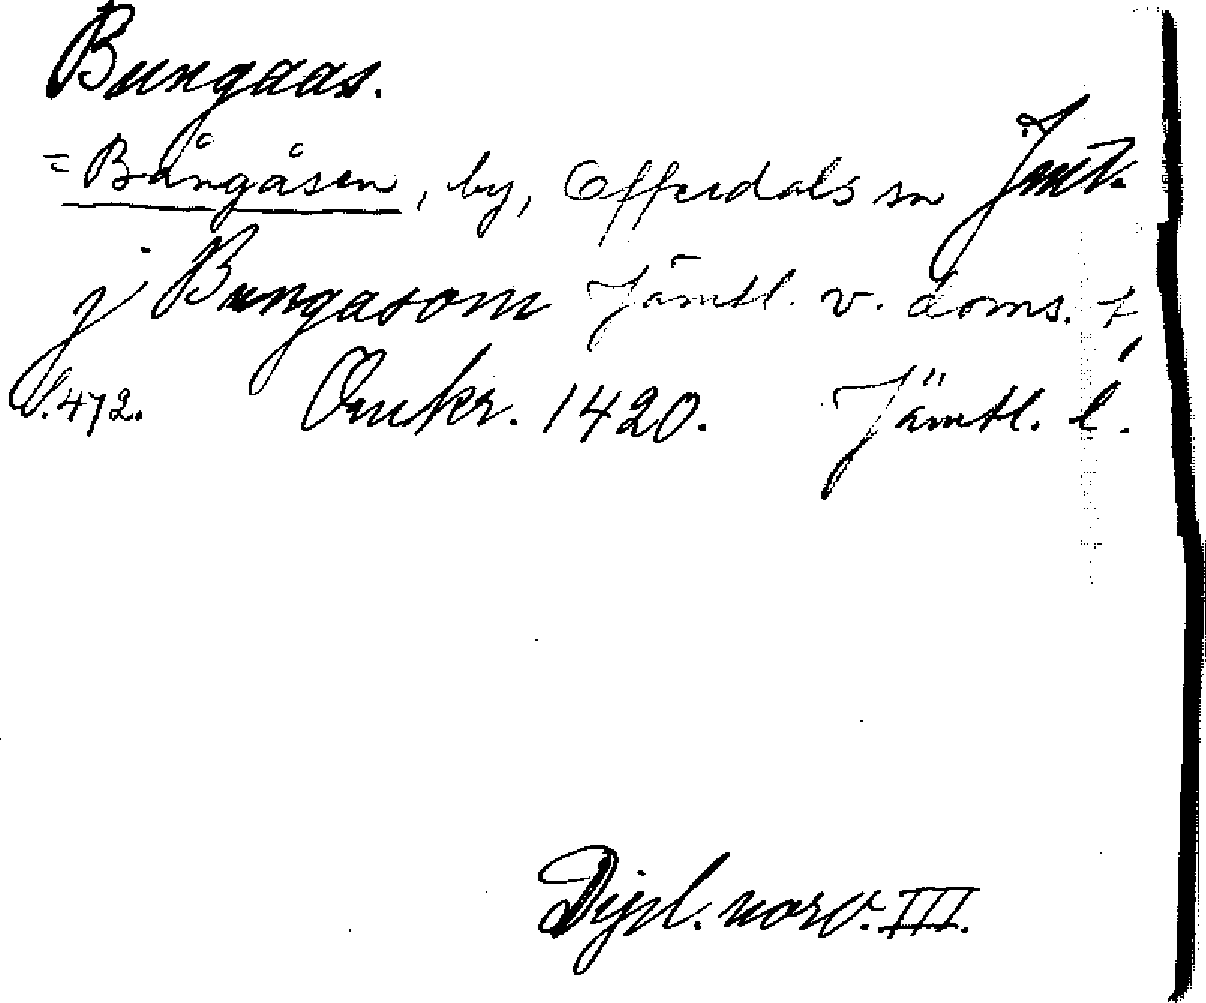 Bungaas.
= Bångåsen, by, Offerdals sn Jmt.
j Bungasom Jämtl. v. doms. t,
S. 472. Omkr. 1420. Jämtl. l.
Dipl. norv. III.